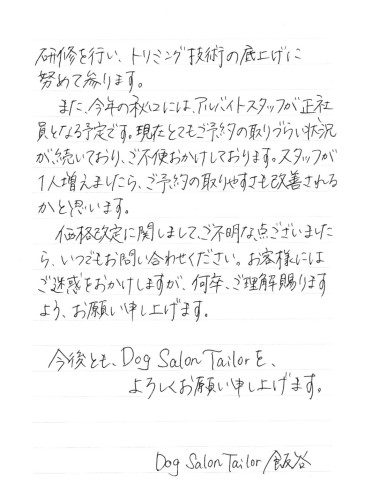 研修を行い、トリミング技術の底上げに
努めて参ります。
また、今年の秋口には、アルバイトスタッフが正社
員となる予定です。現在とてもご予約の取りづらい状況
が続いており、ご不便おかけしております。スタッフが
1人増えましたら、ご予約の取りやすさも改善される
かと思います。
価格改定に関しまして、ご不明な点ございました
ら、いつでもお問い合わせください。お客様には
ご迷惑をおかけしますが、何卒、ご理解賜ります
よう、お願い申し上げます。
今後とも、Dog Salon Tailorを、
よろしくお願い申し上げます。
Dog Salon Tailor 飯谷